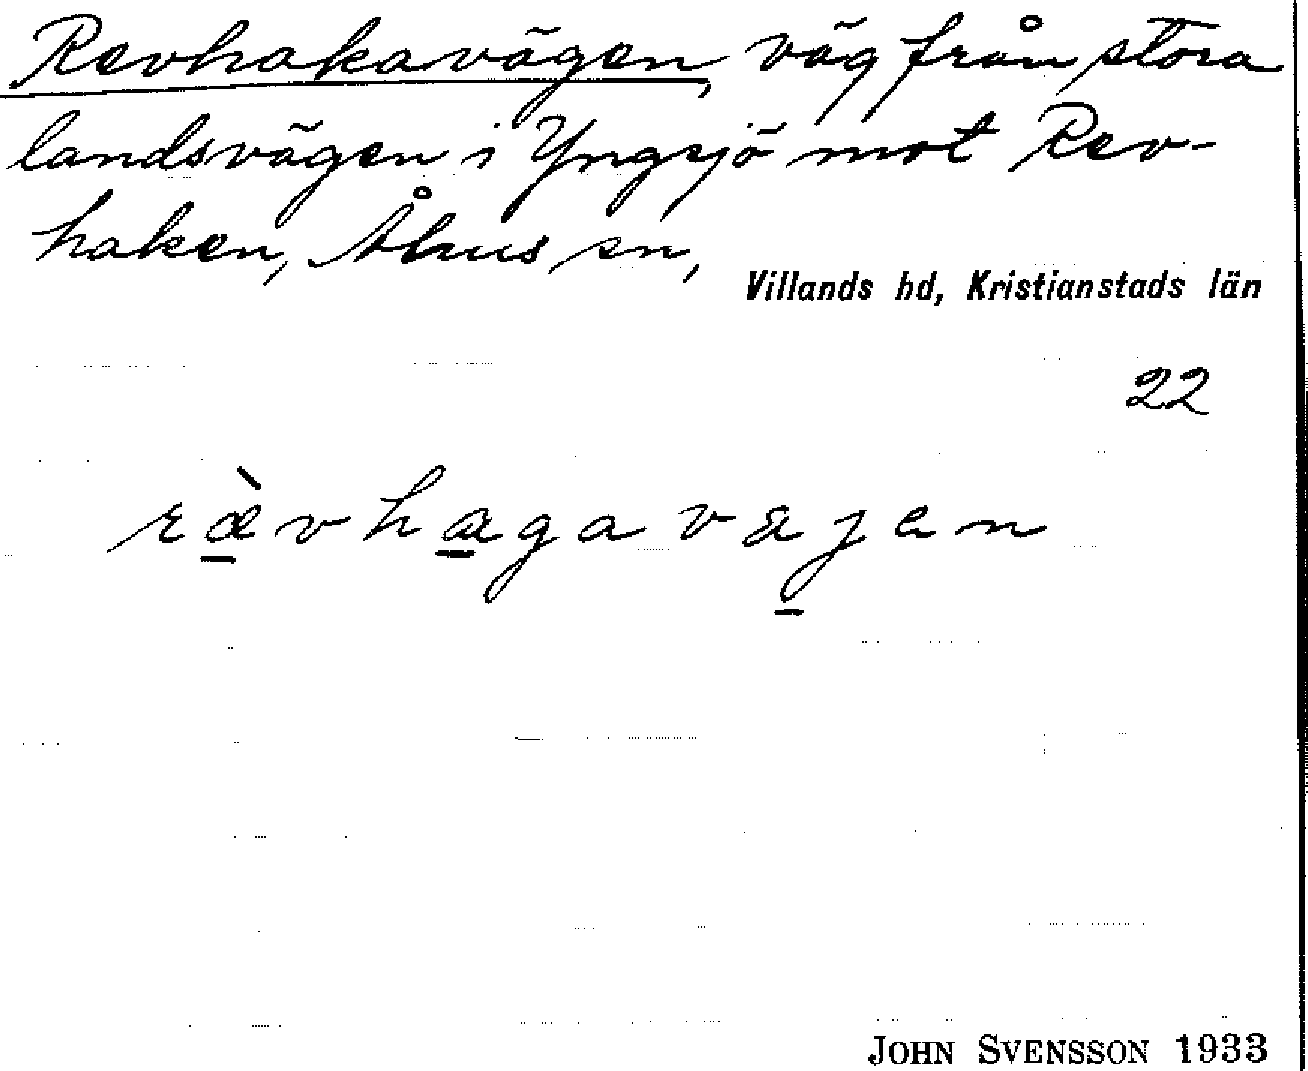 Revhakavägen, väg från stora
landsvägen i Yngsjö mot Rev-
haken, Åhus sn,
Villands hd, Kristianstads län
22
ræ̠̀vha̠gavaj̠en
JOHN SVENSSON 1933